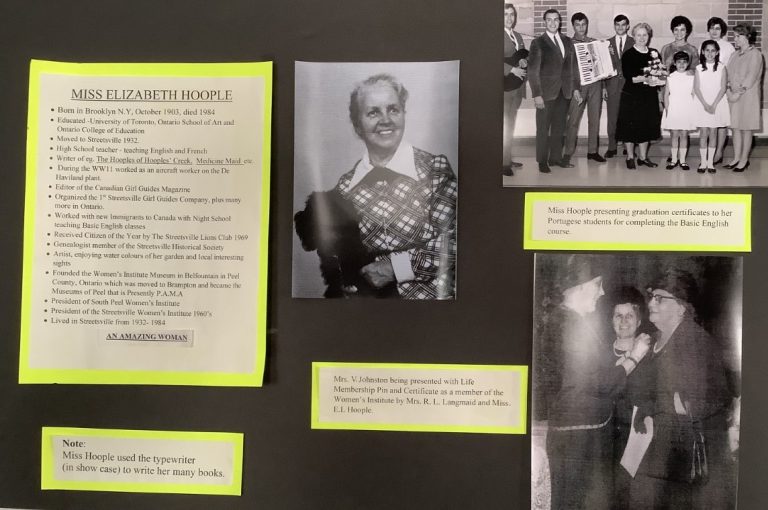 MISS ELIZABETH HOOPLE
• Born in Brooklyn N.Y, October 1903, died 1984
• Educated -University of Toronto, Ontario School of Art and
Ontario College of Education
• Moved to Streetsville 1932.
• High School teacher - teaching English and French
• Writer of eg. The Hooples of Hooples' Creek, Medicine Maid etc.
• During the WW11 worked as an aircraft worker on the De
Haviland plant.
• Editor of the Canadian Girl Guides Magazine
• Organized the 1st Streetsville Girl Guides Company, plus many
more in Ontario.
• Worked with new Immigrants to Canada with Night School
teaching Basic English classes
• Received Citizen of the Year by The Streetsville Lions Club 1969
• Genealogist member of the Streetsville Historical Society
• Artist, enjoying water colours of her garden and local interesting
sights
• Founded the Women's Institute Museum in Belfountain in Peel
County, Ontario which was moved to Brampton and became the
Museums of Peel that is Presently P.A.M.A
• President of South Peel Women's Institute
• President of the Streetsville Women's Institute 1960's
• Lived in Streetsville from 1932- 1984
AN AMAZING WOMAN
Note:
Miss Hoople used the typewriter
(in show case) to write her many books.
Mrs. V.Johnston being presented with Life
Membership Pin and Certificate as a member of the
Women's Institute by Mrs. R. L. Langmaid and Miss.
E.I. Hoople.
Miss Hoople presenting graduation certificates to her
Portugese students for completing the Basic English
course.